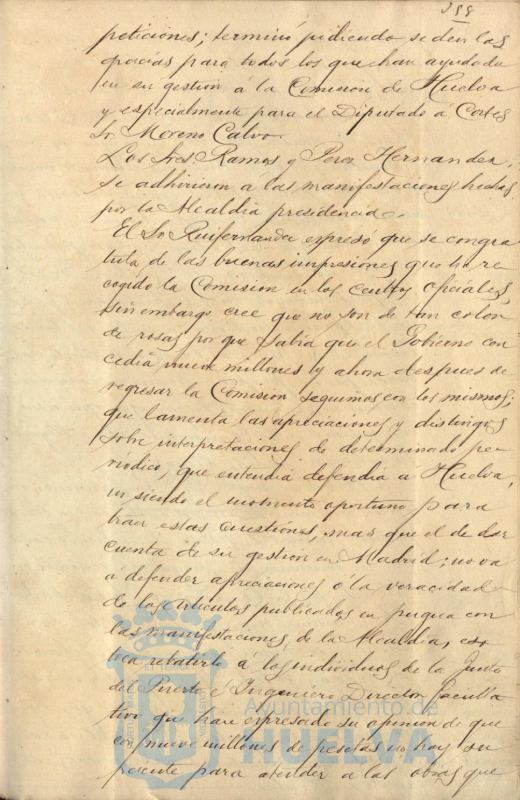 peticiones; terminó pidiendo se den las
gracias para todos los que han ayudado
en su gestión á la Comision de Huelva
y especialmente para el Diputado á Cortes
Sr. Moreno Calvo.
Los Sres Ramos y Perez Hernandez,
se adhirieron á las manifestaciones hechas
por la Alcaldia presidencia.
El Sr. Ruifernandez expresó que se congra
tula de las buenas impresiones que ha re
cogido la Comision en los centros oficiales,
sin embargo cree que no son de tan color
de rosas por que sabia que el Gobierno con
cedia nueve millones y ahora despues de
regresar la Comisión seguimos con los mismos;
que lamenta las apreciaciones y distingos
sobre interpretaciones de determinado pe
riódico, que entendia defendia a Huelva,
siendo el momento oportuno para
traer estas cuestiones, mas que el de dar
cuenta de su gestión en Madrid; no va
á defender apreciaciones ó la veracidad
de los articulos publicados en pugna con
las manifestaciones, de la Alcaldia,
rebatirlo á los individuos de la Junta
del Puerto é Ingeniero Director faculta
tivo que han expresado su opinion de que
con nueve millones de pesetas no hay su
ficiente para atender a las obras que
Ayuntamiento de
HUELVA